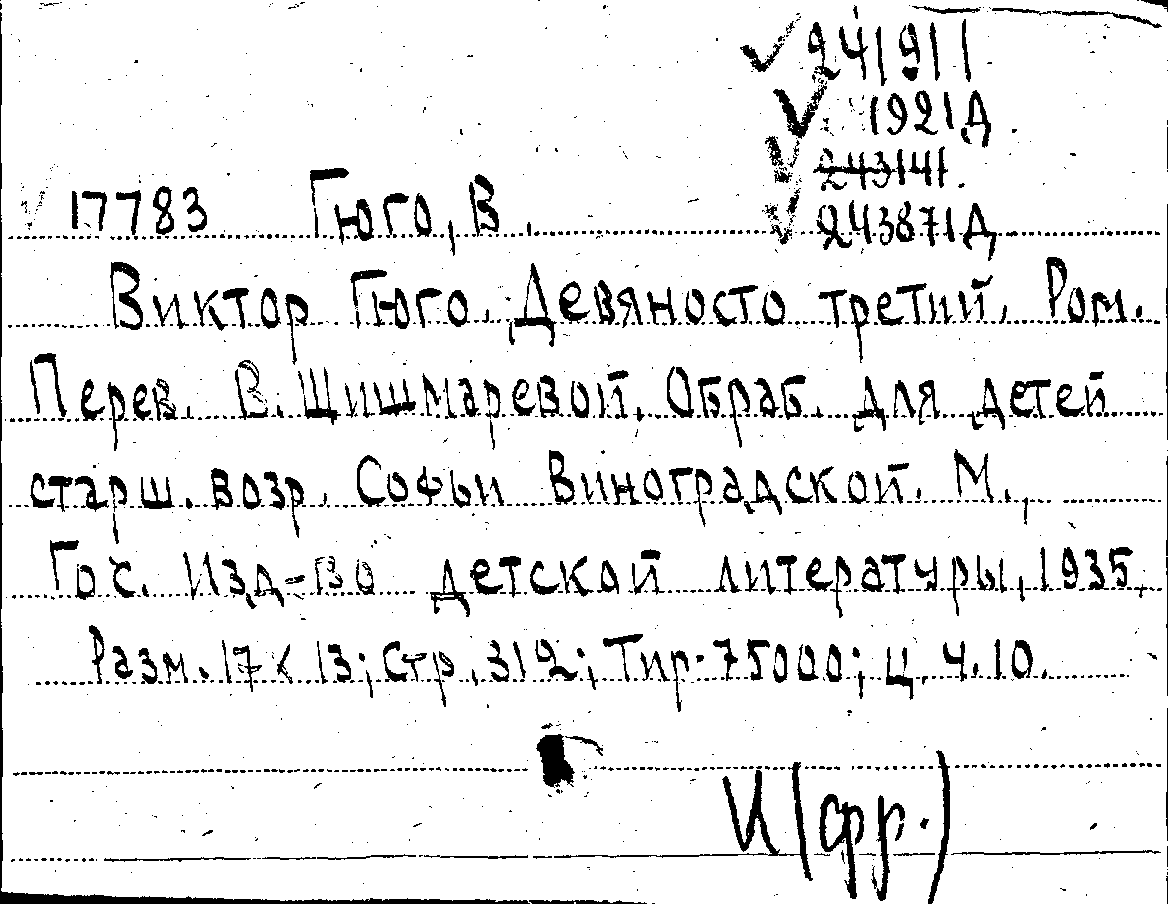 241911
1921Д.
243141.
17783 Гюго, В.
243871Д
Виктор Гюго. Девяносто третий. Ром.
Перев. В. Шишмаревой. Обраб. для детей
старш. возр. Софьи Виноградской. М.,
Гос. Изд-во детской литературы, 1935,
Разм. 17х13; стр. 312; Тир. 75000; ц. 4.10.
И(фр.)